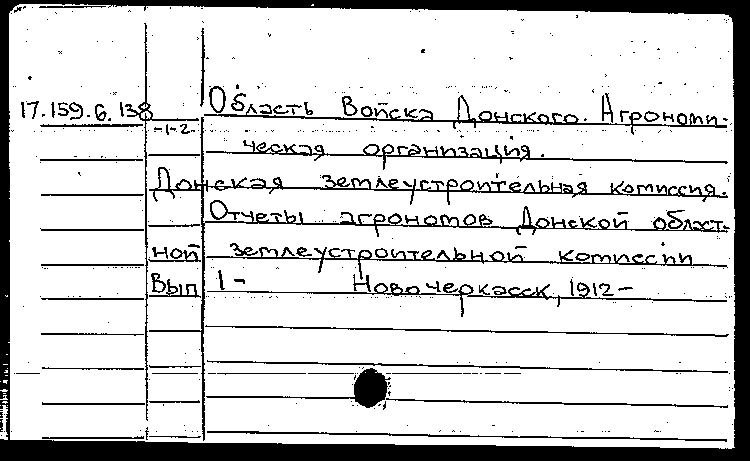 17.159.6.138 Область Войска Донского. Агрономи-
-1-2-
ческая организация.
Донская землеустроительная комиссия.
Отчеты агрономов Донской област-
ной землеустроительной комиссии
Вып 1- Новочеркасск, 1912-